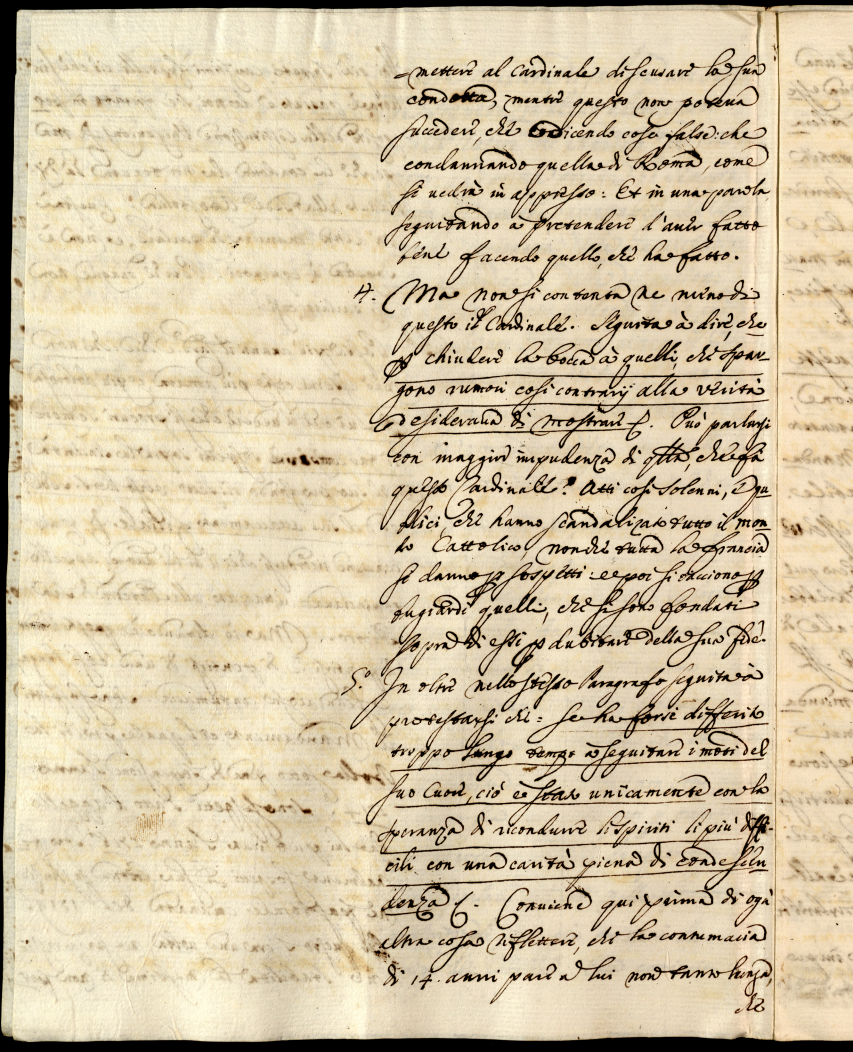 -mettere al Cardinale di scusare la sua
condotta, mentre questo non poteva
succedere, che dicendo cose false: che
condannando quella di Roma, come
si vedrà in appresso: Et in una parola
seguitando à pretendere l'aver fatto
bene facendo quello, che ha fatto.
4. Ma non si contenta ne meno di
questo il Cardinale. Seguita à dire, che
p chiudere la bocca à quelli, che spar-
gono rumori cosi contrarij alla verità
desiderava di mostrare &. Può parlarsi
con maggior impudenza di qlla, che fà
questo Cardinale? Atti cosi solenni, e pu-
blici, che hanno scandalizato tutto il mon-
do Cattolico, non che tutta la Francia
si danno p sospetti: e poi si tacciono p
bugiardi quelli, che si sono fondati
sopra di essi p dubitare della sua fede.
5.º In oltre nello stesso Paragrafo seguita à
protestarsi che = se ha forse differito
troppo lungo tempo à seguitare i moti del
suo Cuore, ciò è stato unicamente con la
speranza di ricondurre li spiriti li più diffi-
cili con una carità piena di condescen
denza &. Conviene qui prima di ogn'
altra cosa riflettere, che la contumacia
di 14. anni pare a lui non tanto lunga,
che